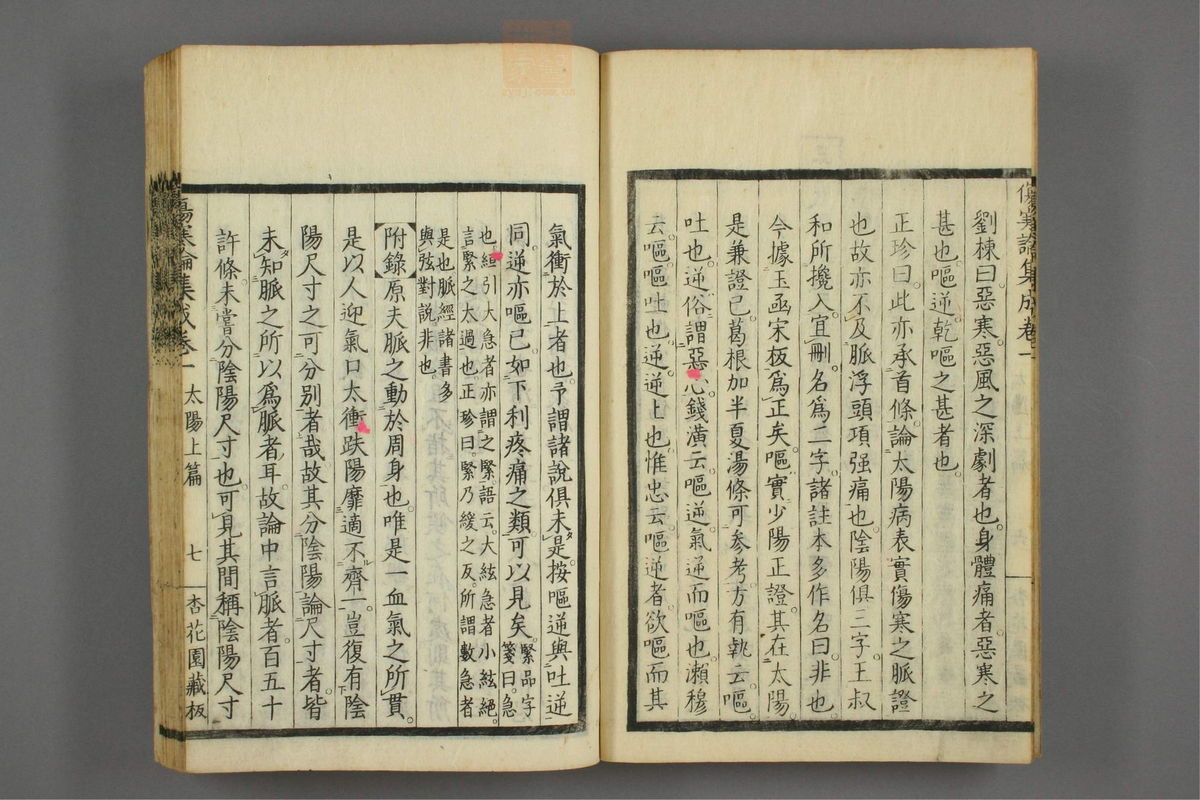 傷寒論集成卷一
劉棟曰惡寒惡風之深劇者也身體痛者惡寒之
甚也嘔逆乾嘔之甚者也
正珍曰此亦承首條論太陽病表實傷寒之脈證
也故亦不及脈浮頭項强痛也陰陽俱三字王叔
和所攙入宜刪名爲二字諸註本多作名曰非也
今據玉函宋板爲正矣嘔實少陽正證其在太陽
是兼證已葛根加半夏湯條可參考方有執云嘔
吐也逆俗謂惡心錢潢云嘔逆氣逆而嘔也瀨穆
云嘔嘔吐也逆逆上也惟忠云嘔逆者欲嘔而其
氣衝於上者也予謂諸說俱未是按嘔逆與吐逆
同逆亦嘔已如下利疼痛之類可以見矣緊品字
箋曰急
也絙引大急者亦謂之緊語云大絃急者小絃絕
言緊之太過也正珍曰緊乃緩之反所謂數急者
是也脈經諸書多
與弦對說非也
附錄原夫脈之動於周身也唯是一血氣之所貫
是以人迎氣口太衝趺陽靡適不齊一豈復有陰
陽尺寸之可分別者哉故其分陰陽論尺寸者皆
未知脈之所以爲脈者耳故論中言脈者百五十
許條未嘗分陰陽尺寸也可見其間稱陰陽尺寸
傷寒論集成卷一 太陽上篇 七 杏花園藏板